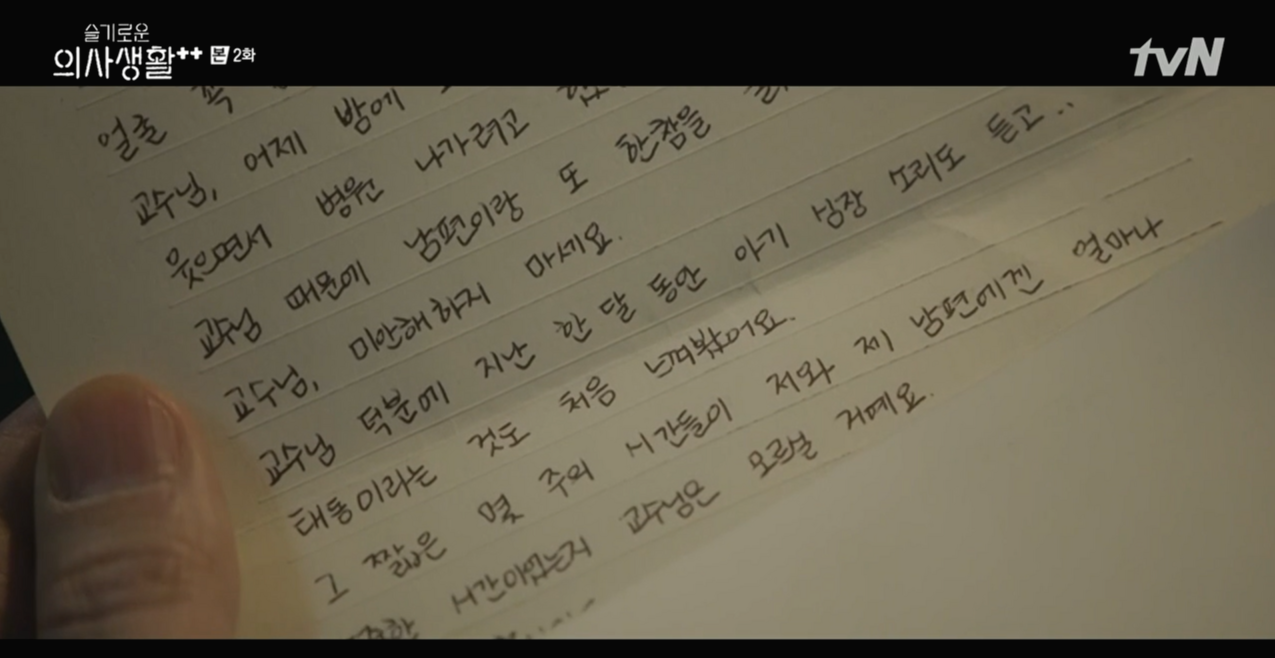 슬기로운
의사생활++ 본 2화
tvN
얼른 꼭
교수님, 어제 밤에
웃으면서 병원 나가려고
교수님 때문에 남편이랑 또 한참을
교수님, 미안해하지 마세요.
교수님 덕분에 지난 한 달 동안 아기 심장 소리도 듣고..
태동이라는 것도 처음 느껴봤어요.
그 짧은 몇 주의 시간들이 저와 제 남편에겐 얼마나
시간이었는지 교수님은 모르실 거예요.